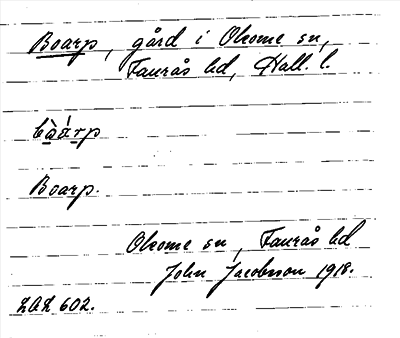 Boarp, gård i Okome sn,
Faurås hd, Hall. l.
bòá̀rp
Boarp.
Okome sn, Faurås hd
John Jacobsson 1918.
LAL 602.